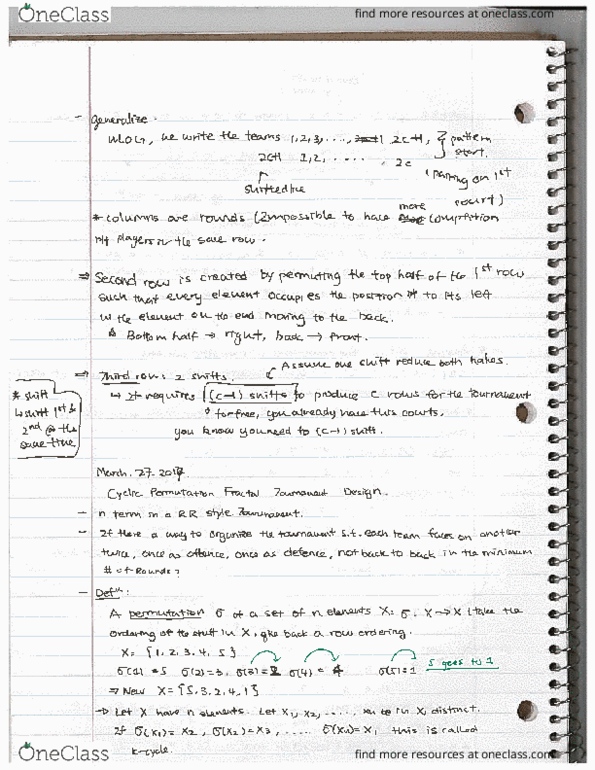 OneClass
find more resources at oneclass.com
- generalize.
WLOG, we write the teams 1, 2, 3, ..., 2c+1, } pattern
2c+1 1, 2, ..... , 2c start.
↑ (pairing on 1st
shifted line court)
more
* columns are rounds (Impossible to have competition
b/t players in the same row.
⇒ Second row is created by permuting the top half of the 1st row
such that every element occupies the position to its left
w/ the element on the end moving to the back.
Bottom half → right, back → front.
Assume one shift reduce both halves.
⇒ Third row: 2 shifts.
↳ It requires (c-1) shifts to produce c rows for the tournament
for free, you already have this courts.
you know you need to (c-1) shift.
* shift
↳ shift 1st &
2nd @ the
same time
March. 27. 2017.
Cyclic Permutation Fractal Tournament Design.
- n term in a RR style Tournament.
- If there a way to organize the tournament s.t. each team faces on another
twice, once as offence, once as defence, not back to back in the minimum
# of Rounds?
- Defⁿ:
A permutation σ of a set of n elements X: σ. X → X (take the
ordering of the stuff in X, give back a row ordering.
X = {1, 2, 3, 4, 5}
σ(1) = 5 σ(2) = 3, σ(3) = 2 σ(4) = 4 σ(5) = 1 5 goes to 1
⇒ New X = {5, 3, 2, 4, 1}
→ Let X have n elements. Let X₁, X₂, ....., be in X, distinct.
If σ(X₁) = X₂, σ(X₂) = X₃, ..... = X₁ this is called
k-cycle.
OneClass
find more resources at oneclass.com